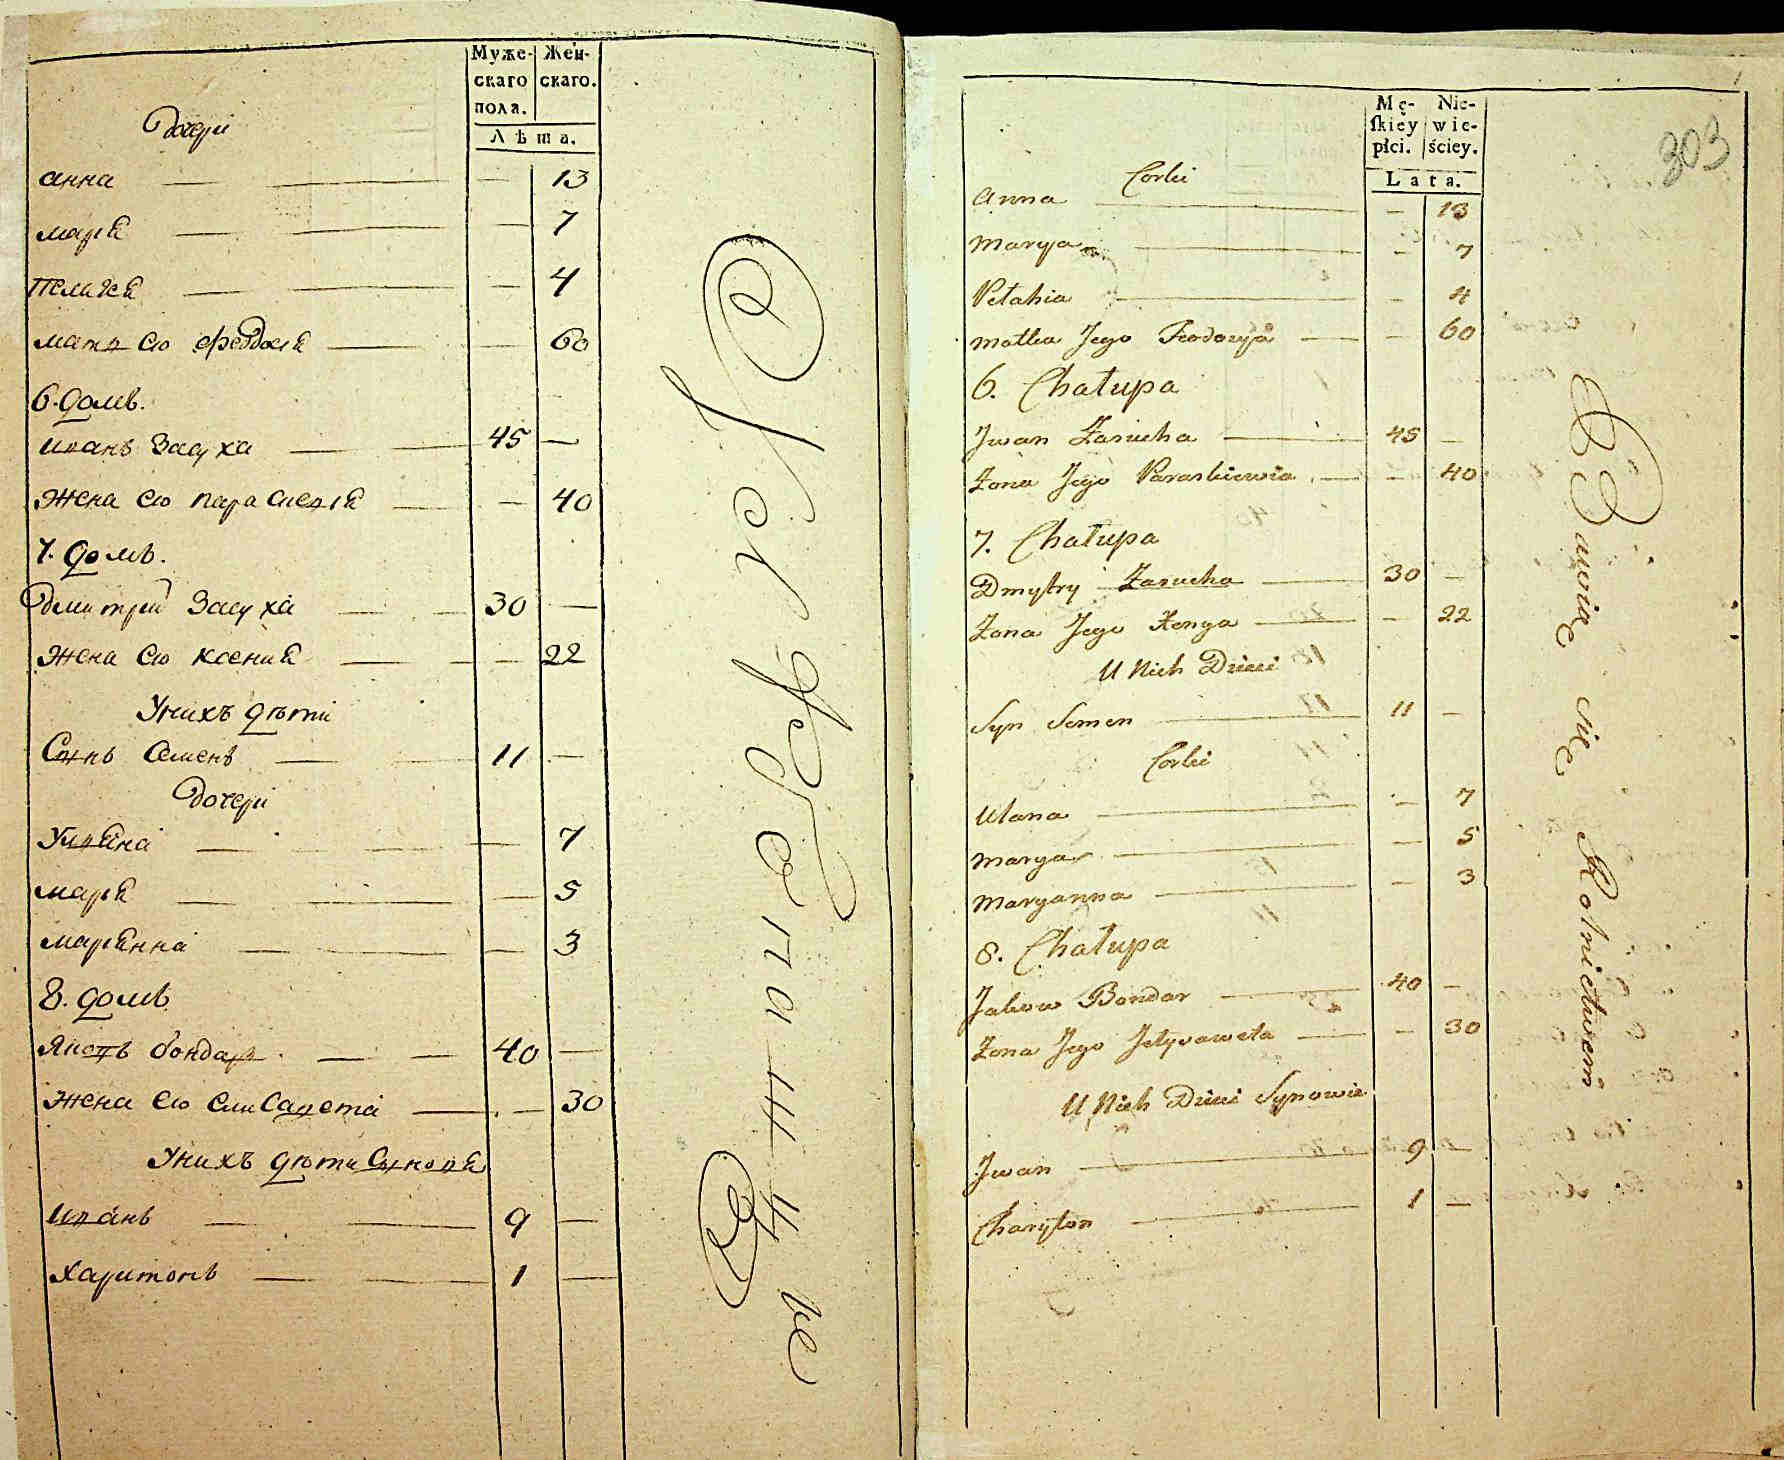 Муже- Жен-
скаго скаго.
пола.
Лѣта.
Дочери
анна — — — 13
марія — — — 7
Пелагея — — — 4
мать его Феодосія — — 60
6. домъ.
иванъ Засуха — 45 —
Жена его параскевія — — 40
7. домъ.
Дмитрий Засуха — 30 —
Жена его ксения — — 22
Унихъ дѣти
Сынъ Семенъ — 11 —
Дочери
Ульяна — — — 7
марья — — — 5
марьянна — — — 3
8. домъ
Яковъ бондарь — — 40 —
Жена его елисавета — — 30
Унихъ дѣти Сыновья
иванъ — — 9 —
Харитонъ — — 1 —
Mę- Nie-
skiey wie-
płci. ściey.
Lata.
303
Corki
Anna — — 13
Marya — — 7
Pelahia — — 4
Matka Jego Feodosya — — 60
6. Chałupa
Jwan Zasucha — 45 —
Zona Jego Paraskiewia — — 40
7. Chałupa
Dmytry Zasucha — 30 —
Zona Jego Xenya — — 22
U Nich Dzieci
Syn Semen — 11 —
Corki
Ulana — — 7
Marya — — 5
Maryanna — — 3
8. Chałupa
Jakow Bondar — 40 —
Zona Jego Jelysaweta — — 30
U Nich Dzieci Synowie
Jwan — 9 —
Charyton — 1 —
Bawią się Rolnictwem